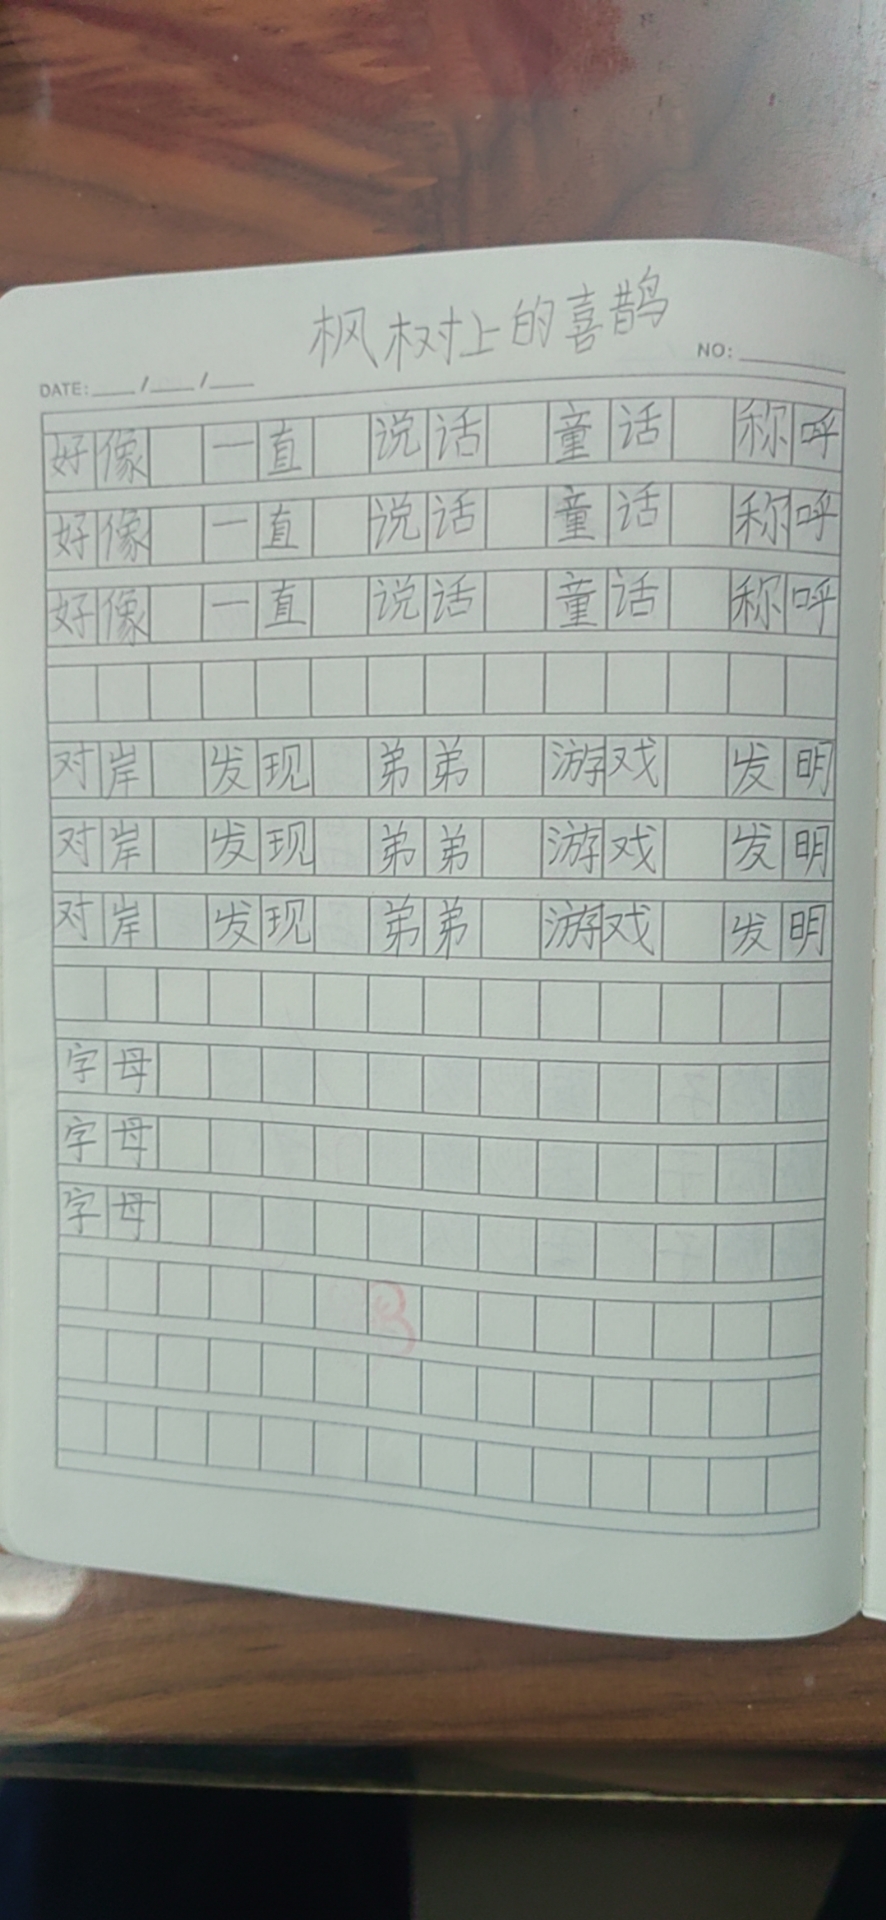 枫树上的喜鹊
NO:
DATE: / /
好像 一直 说话 童话 称呼
好像 一直 说话 童话 称呼
好像 一直 说话 童话 称呼
对岸 发现 弟弟 游戏 发明
对岸 发现 弟弟 游戏 发明
对岸 发现 弟弟 游戏 发明
字母
字母
字母